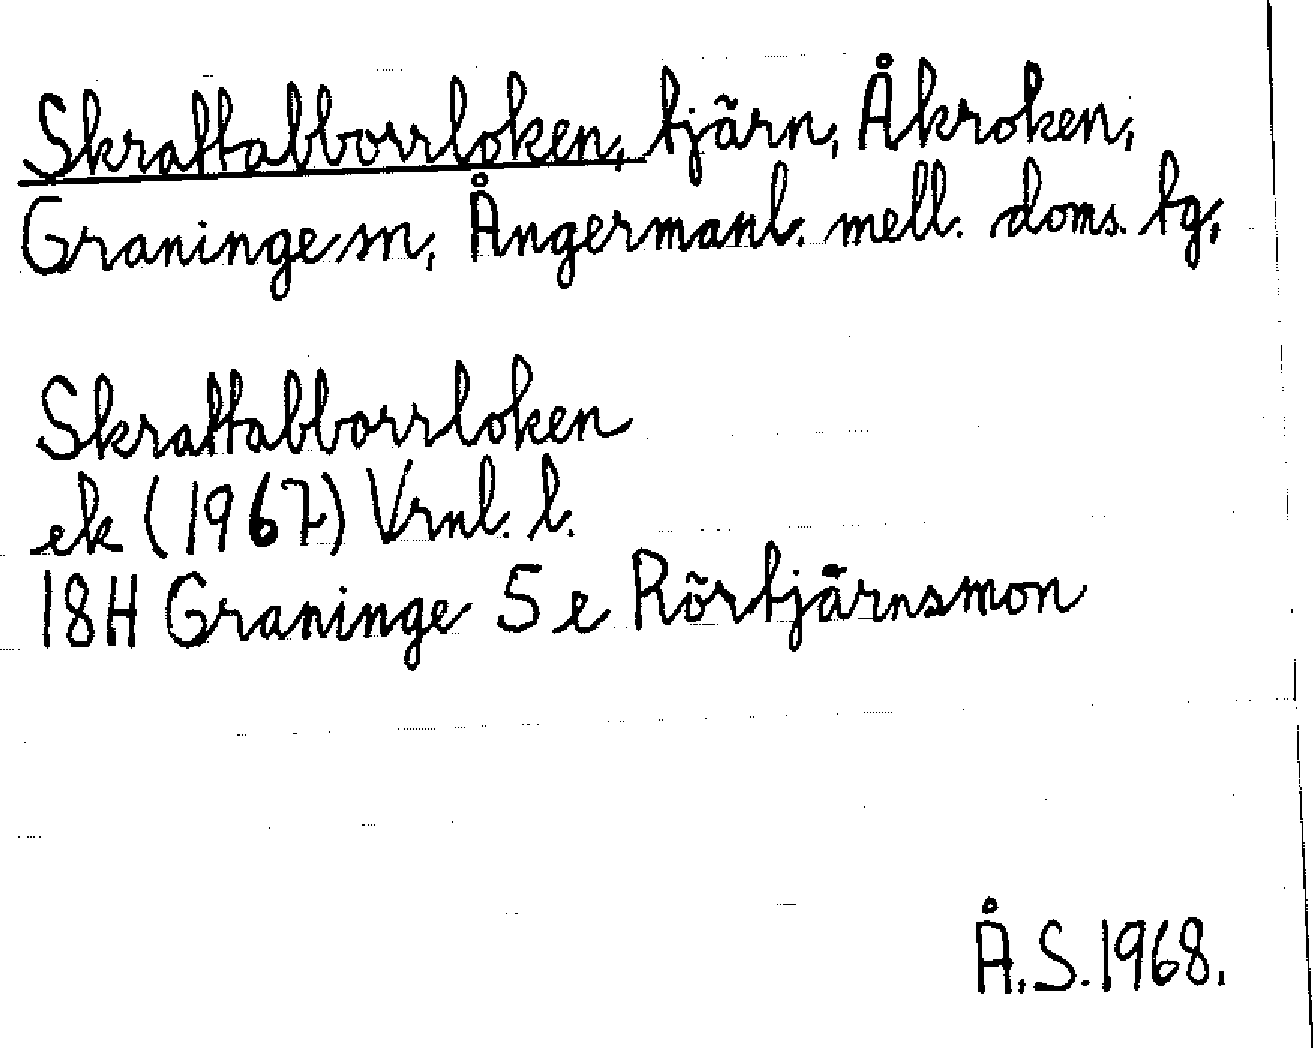 Skrattabborrloken, tjärn, Åkroken,
Graninge sn, Ångermanl. mell. doms. tg,
Skrattabborrloken
ek (1967) Vrnl. l.
18H Graninge 5 e Rörtjärnsmon
Å.S. 1968.